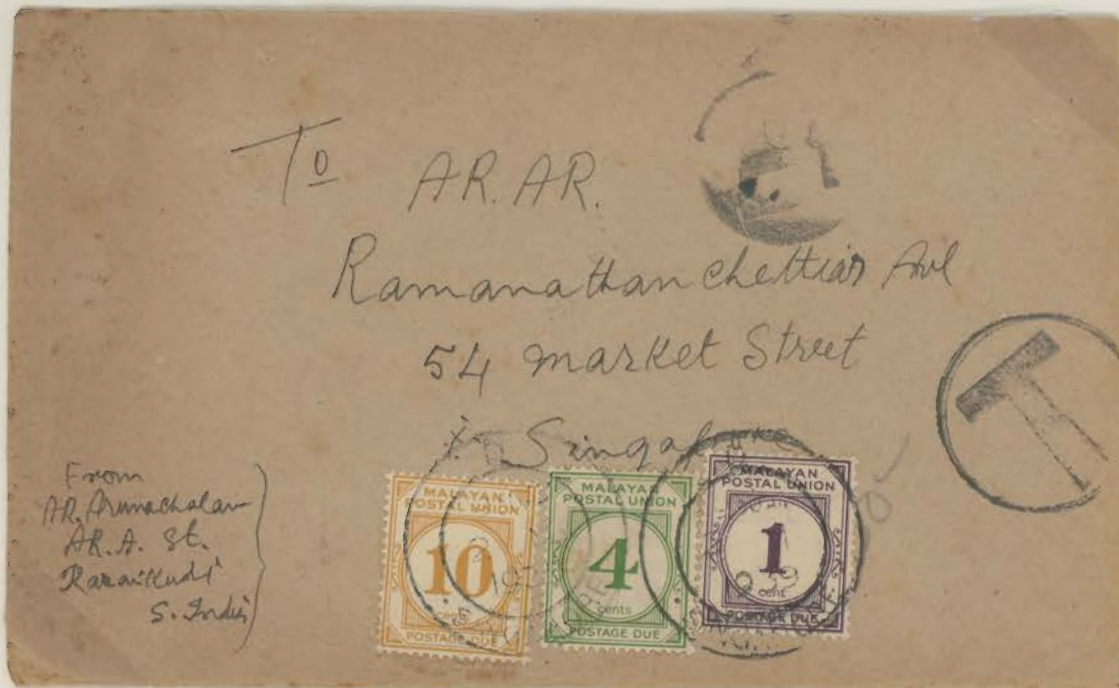 To
AR. AR.
Ramanathan Chettiar Avl
54 Market Street
Singapore
From
AR. Arunachalam
AR. A. St.
Karaikudi
S. India
T
MALAYAN
POSTAL UNION
10
cents
POSTAGE DUE
MALAYAN
POSTAL UNION
4
cents
POSTAGE DUE
MALAYAN
POSTAL UNION
1
cent
POSTAGE DUE